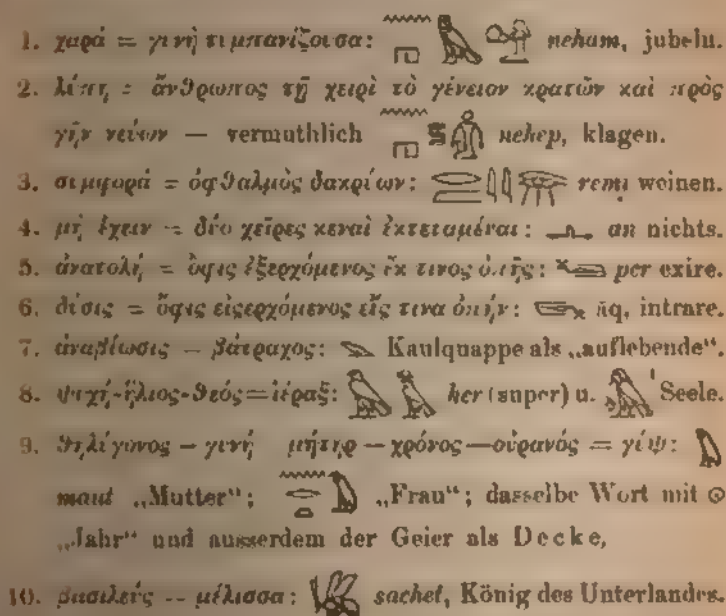 1. χαρά = γυνὴ τυμπανίζουσα: neham, jubeln.
2. λύπη = ἄνθρωπος τῇ χειρὶ τὸ γένειον κρατῶν καὶ πρὸς
γῆν νεύων — vermuthlich nehep, klagen.
3. συμφορά = ὀφθαλμὸς δακρύων: remi weinen.
4. μὴ ἔχειν = δύο χεῖρες κεναὶ ἐκτεταμέναι: an nichts.
5. ἀνατολή = ὄφις ἐξερχόμενος ἔκ τινος ὀπῆς: per exire.
6. δύσις = ὄφις εἰσερχόμενος εἴς τινα ὀπήν: āq, intrare.
7. ἀναβίωσις – βάτραχος: Kaulquappe als „auflebende“.
8. ψυχή-ἥλιος-θεός=ἱέραξ: her (super) u. Seele.
9. θηλύγονος – γυνή μήτηρ – χρόνος—οὐρανός = γύψ:
maut „Mutter“; „Frau“; dasselbe Wort mit ☉
„Jahr“ und ausserdem der Geier als Decke,
10. βασιλεύς -- μέλισσα: sachet, König des Unterlandes.